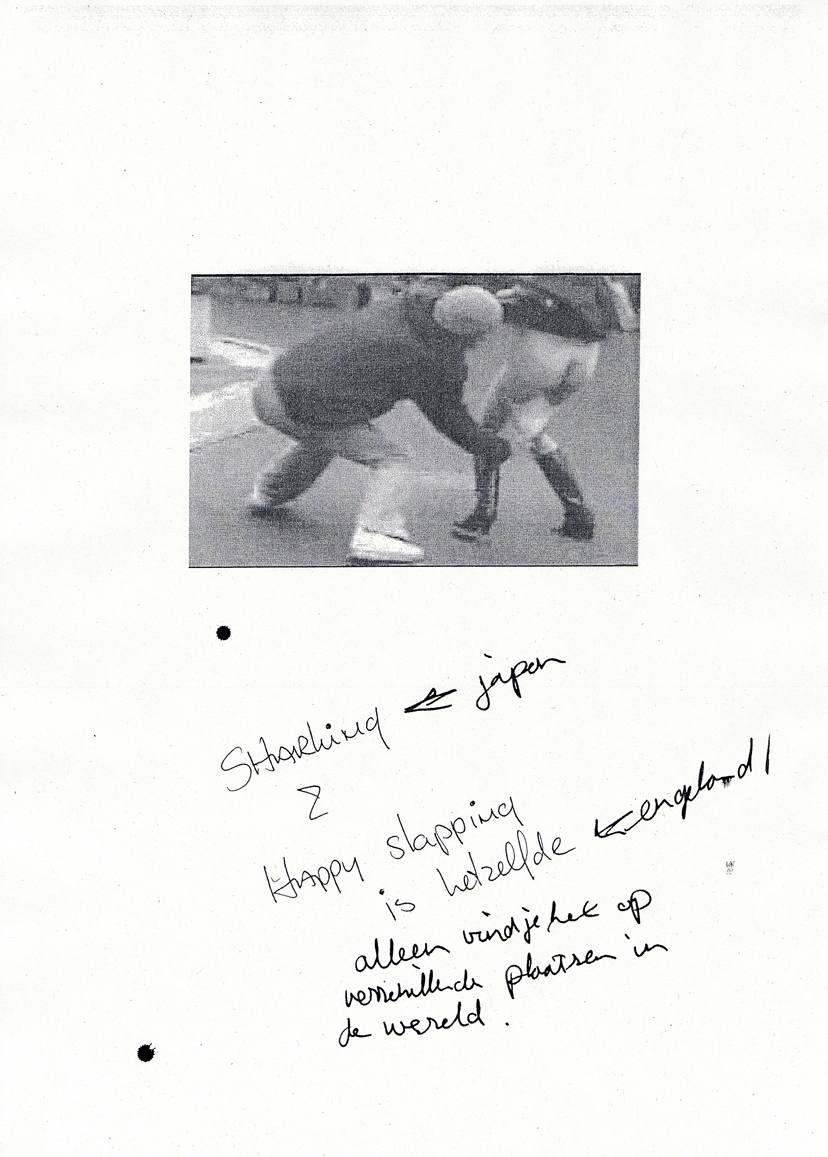 SHARKING ← japan
&
HAppy slapping
is hetzelfde ← engeland/
alleen vind je het op
verschillende plaatsen in
de wereld.